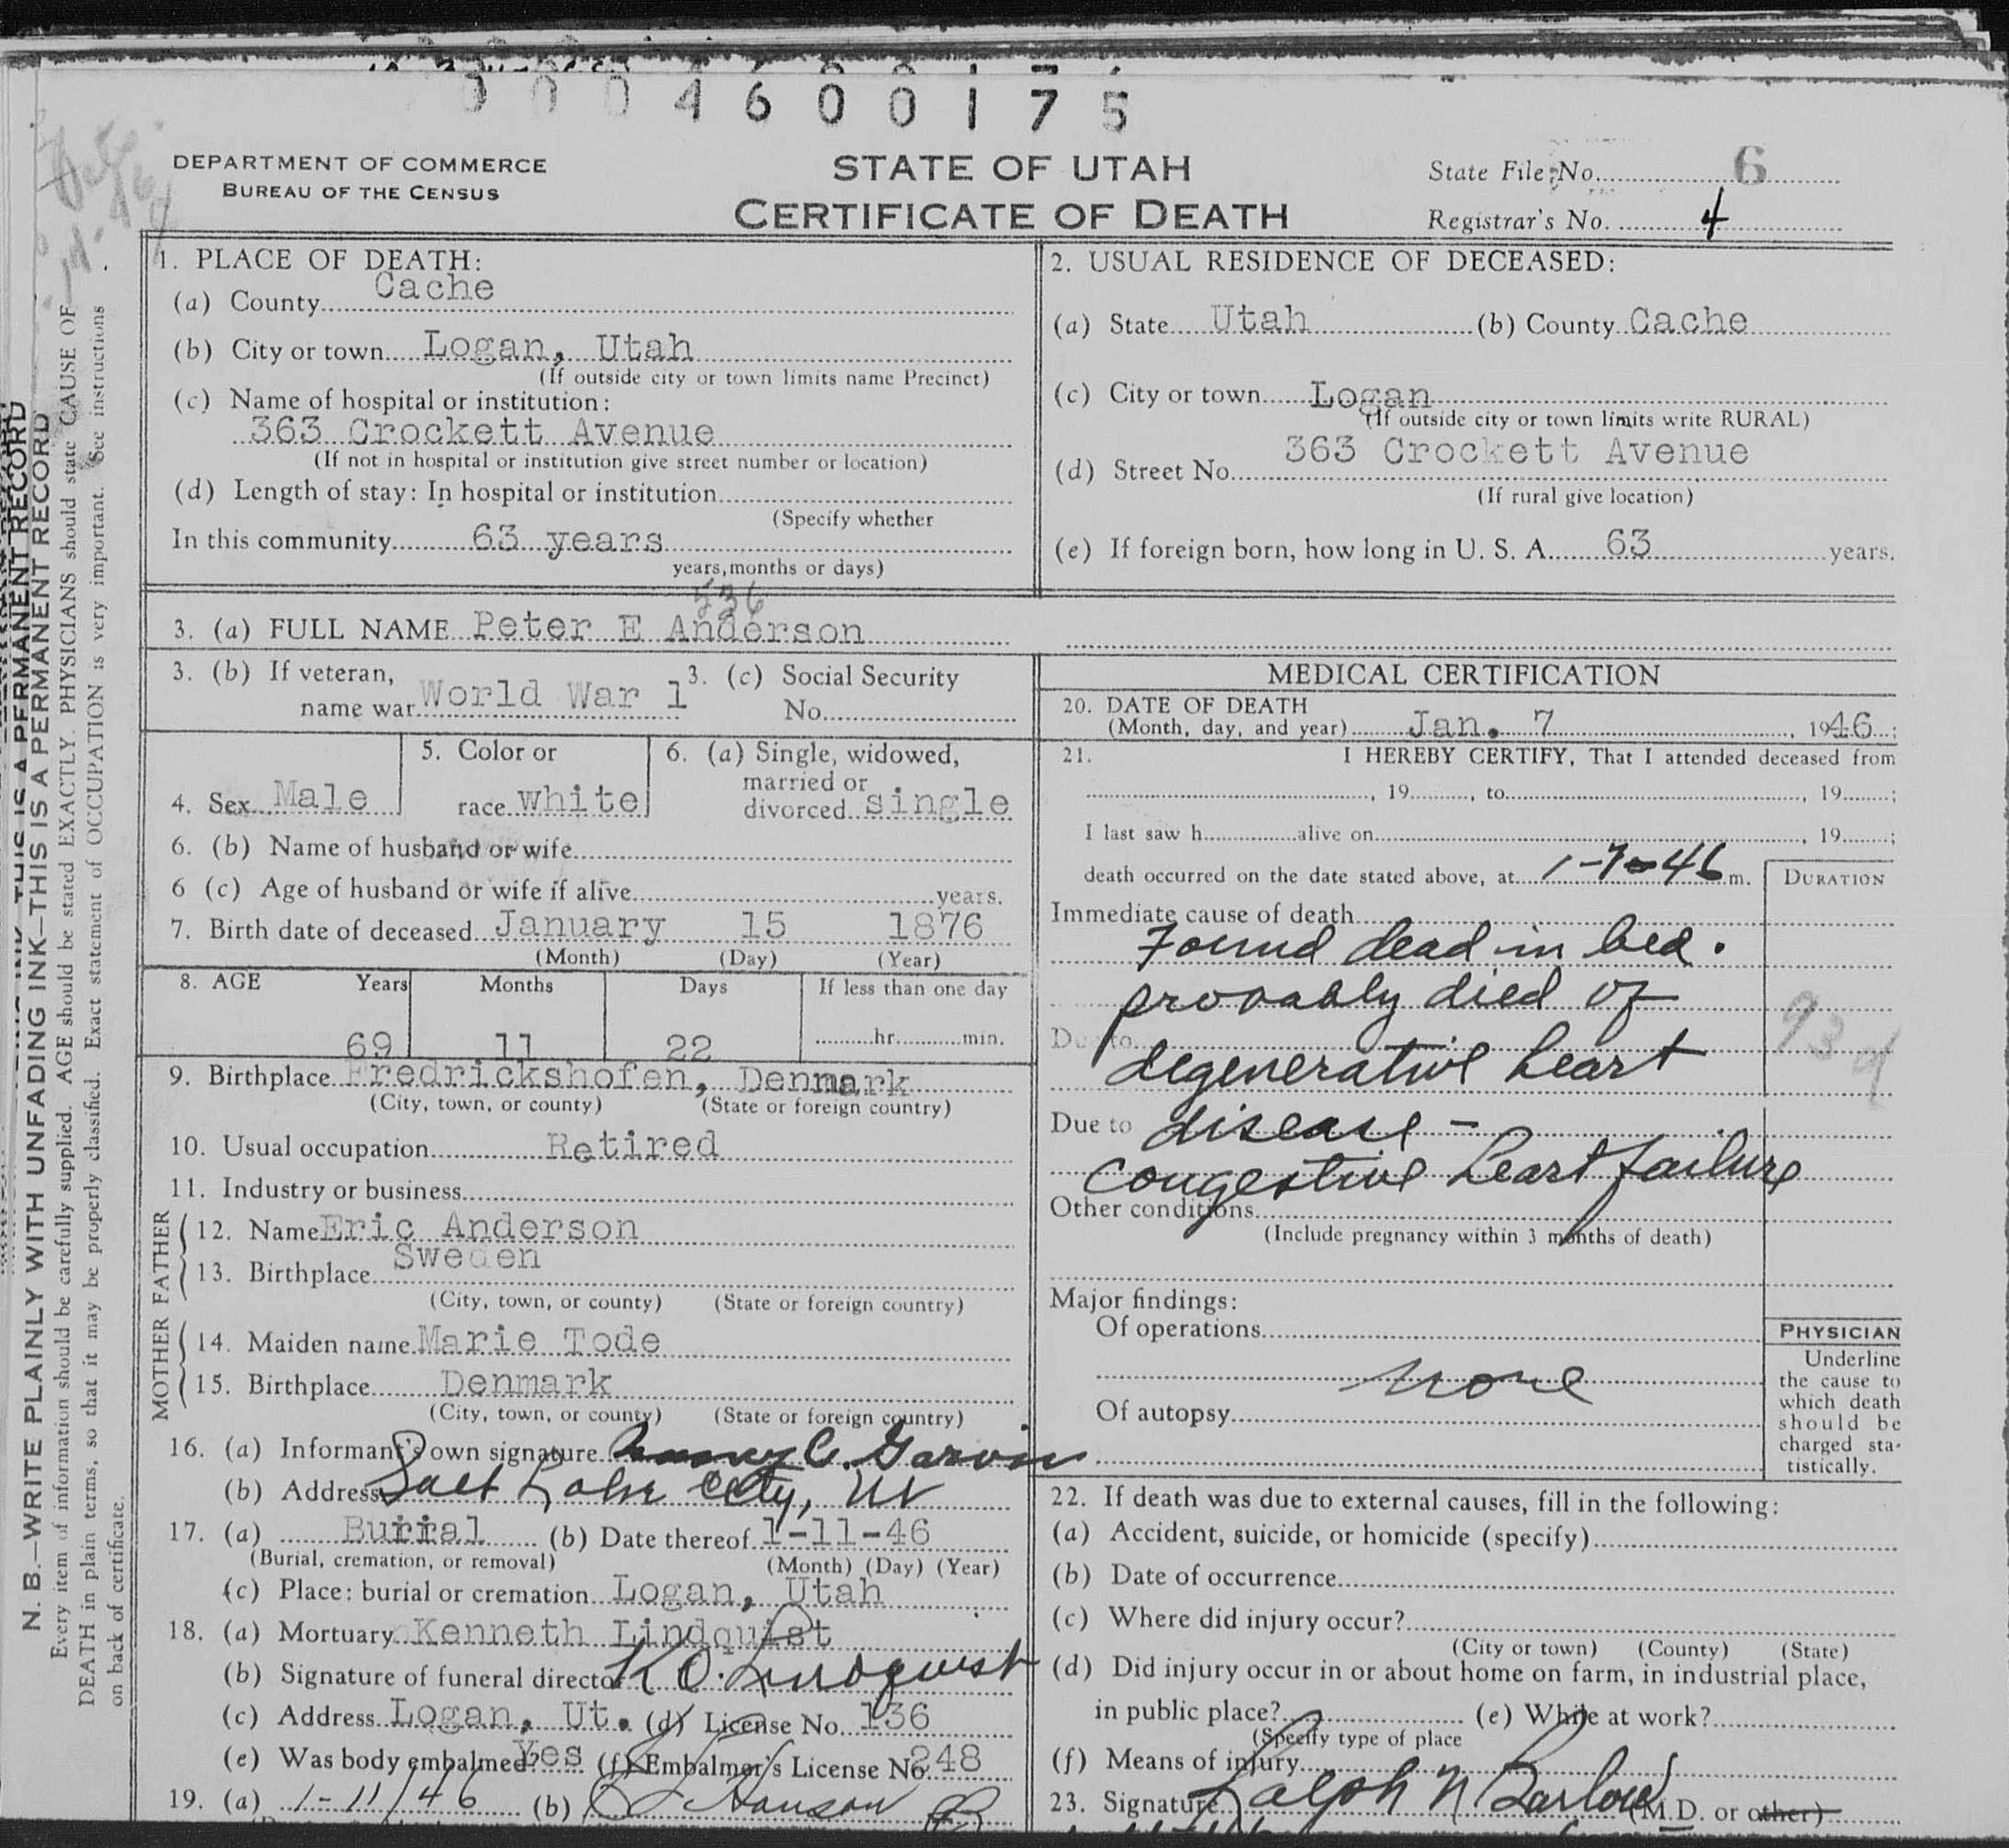 0004600175
DEPARTMENT OF COMMERCE
BUREAU OF THE CENSUS
STATE OF UTAH
CERTIFICATE OF DEATH
State File No. 6
Registrar's No. 4
1. PLACE OF DEATH:
(a) County Cache
(b) City or town Logan, Utah
(If outside city or town limits name Precinct)
(c) Name of hospital or institution:
363 Crockett Avenue
(If not in hospital or institution give street number or location)
(d) Length of stay: In hospital or institution
(Specify whether
In this community 63 years
years, months or days)
2. USUAL RESIDENCE OF DECEASED:
(a) State Utah (b) County Cache
(c) City or town Logan
(If outside city or town limits write RURAL)
(d) Street No. 363 Crockett Avenue
(If rural give location)
(e) If foreign born, how long in U. S. A. 63 years.
536
3. (a) FULL NAME Peter E Anderson
3. (b) If veteran,
name war World War 1
3. (c) Social Security
No.
4. Sex Male
5. Color or
race white
6. (a) Single, widowed,
married or
divorced single
6. (b) Name of husband or wife
6 (c) Age of husband or wife if alive years.
7. Birth date of deceased January 15 1876
(Month) (Day) (Year)
8. AGE Years Months Days If less than one day
69 11 22 hr. min.
9. Birthplace Fredrickshofen, Denmark
(City, town, or county) (State or foreign country)
10. Usual occupation Retired
11. Industry or business
FATHER
12. Name Eric Anderson
13. Birthplace Sweden
(City, town, or county) (State or foreign country)
MOTHER
14. Maiden name Marie Tode
15. Birthplace Denmark
(City, town, or county) (State or foreign country)
16. (a) Informant's own signature C. Garvin
(b) Address Salt Lake City, Ut
17. (a) Burial (b) Date thereof 1-11-46
(Burial, cremation, or removal) (Month) (Day) (Year)
(c) Place: burial or cremation Logan, Utah
18. (a) Mortuary Kenneth Lindquist
(b) Signature of funeral director K O. Lindquist
(c) Address Logan, Ut. (d) License No. 136
(e) Was body embalmed? Yes (f) Embalmer's License No. 248
19. (a) 1-11/46 (b) Hanson
MEDICAL CERTIFICATION
20. DATE OF DEATH
(Month, day, and year) Jan. 7, 1946;
21. I HEREBY CERTIFY, That I attended deceased from
, 19 , to , 19 ;
I last saw h alive on , 19 ;
death occurred on the date stated above, at 1-7-46 m.
DURATION
Immediate cause of death
Found dead in bed.
provably died of
Due to
degenerative heart
93d
Due to disease -
congestive heart failure
Other conditions
(Include pregnancy within 3 months of death)
Major findings:
Of operations
none
Of autopsy
PHYSICIAN
Underline
the cause to
which death
should be
charged sta-
tistically.
22. If death was due to external causes, fill in the following:
(a) Accident, suicide, or homicide (specify)
(b) Date of occurrence
(c) Where did injury occur?
(City or town) (County) (State)
(d) Did injury occur in or about home on farm, in industrial place,
in public place? (e) While at work?
(Specify type of place
(f) Means of injury
23. Signature Ralph N Barlow (M.D. or other)
N. B.—WRITE PLAINLY WITH UNFADING INK—THIS IS A PERMANENT RECORD
Every item of information should be carefully supplied. AGE should be stated EXACTLY. PHYSICIANS should state CAUSE OF
DEATH in plain terms, so that it may be properly classified. Exact statement of OCCUPATION is very important. See instructions
on back of certificate.